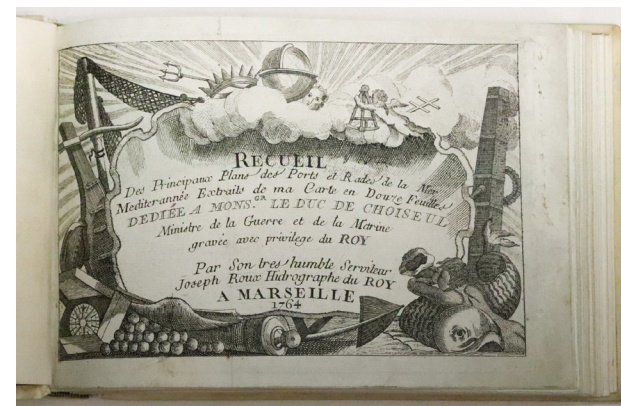 RECUEIL
Des Principaux Plans des Ports et Rades de la Mer
Mediterannée Extraits de ma Carte en Douze Feuilles
DEDIÉE A MONS.GR LE DUC DE CHOISEUL
Ministre de la Guerre et de la Marine
gravée avec privilege du ROY
Par Son tres humble Serviteur
Joseph Roux Hidrographe du ROY
A MARSEILLE
1764